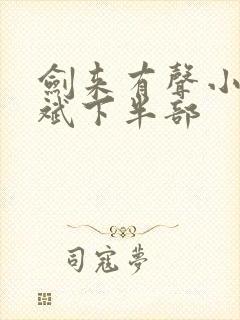 劍来有聲小
斌下半部
司寇夢